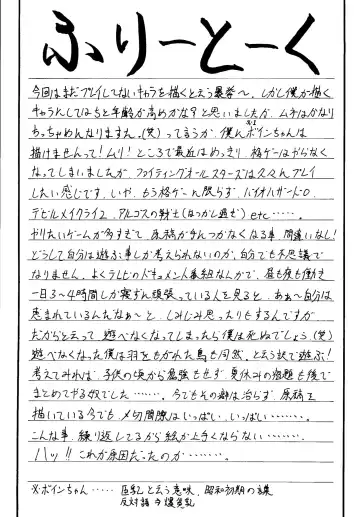 ふりーとーく
今回はまだプレイしてないキャラを描くと云う暴挙〜。しかし僕が描く
キャラにしてはちと年齢が高めかな?と思いましたが、ムチはかなり
めっちゃめんなりますた。(笑)って言うか、僕にボインちゃんは
※1
描けませんって!ムリ!ところで最近はめっきり、格ゲーはやらなく
なってしまいましたが、ファイティングオールスターズは久々にプレイ
したい感じです。いや、もう格ゲーに限らず、バイオハザード0、
デビルメイクライ2、アルゴスの戦士(なつかし過ぎ)etc……。
やりたいゲームが多すぎて、原稿が手につかなくなる事、間違いなし!
どうして自分は遊ぶ事しか考えられないのか、自分でも不思議で
なりません。よくTVのドキュメント番組なんかで、昼も夜も働き
一日3〜4時間しか寝ずに頑張っている人を見ると、あぁ〜自分は
恵まれているんだなぁ〜と、しみじみ思ったりもするんですが
だからと云って、遊べなくなってしまったら僕は死ぬでしょう。(笑)
遊べなくなった僕は羽をもがれた鳥も同然。と云う訳で遊ぶ!
考えてみれば、子供の頃から勉強もせず、夏休みの宿題も後で
まとめてやる奴でした………。今でもその癖は治らず、原稿を
描いている今でも、〆切間際はいっぱい、いっぱい………。
こんな事、繰り返してるから絵が上手くならない………。
ハッ!!これが原因だったのか………。
※ボインちゃん……巨乳と云う意味。昭和初期の言葉
反対語